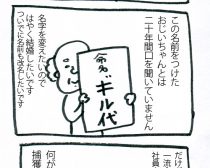 この名前をつけた
おじいちゃんとは
二十年間口を聞いていません
命名
ギル代
名字を変えたいので
はやく結婚したいです
ついでに名前も改名したいです
だけ
一流
社員
何が
捕獲